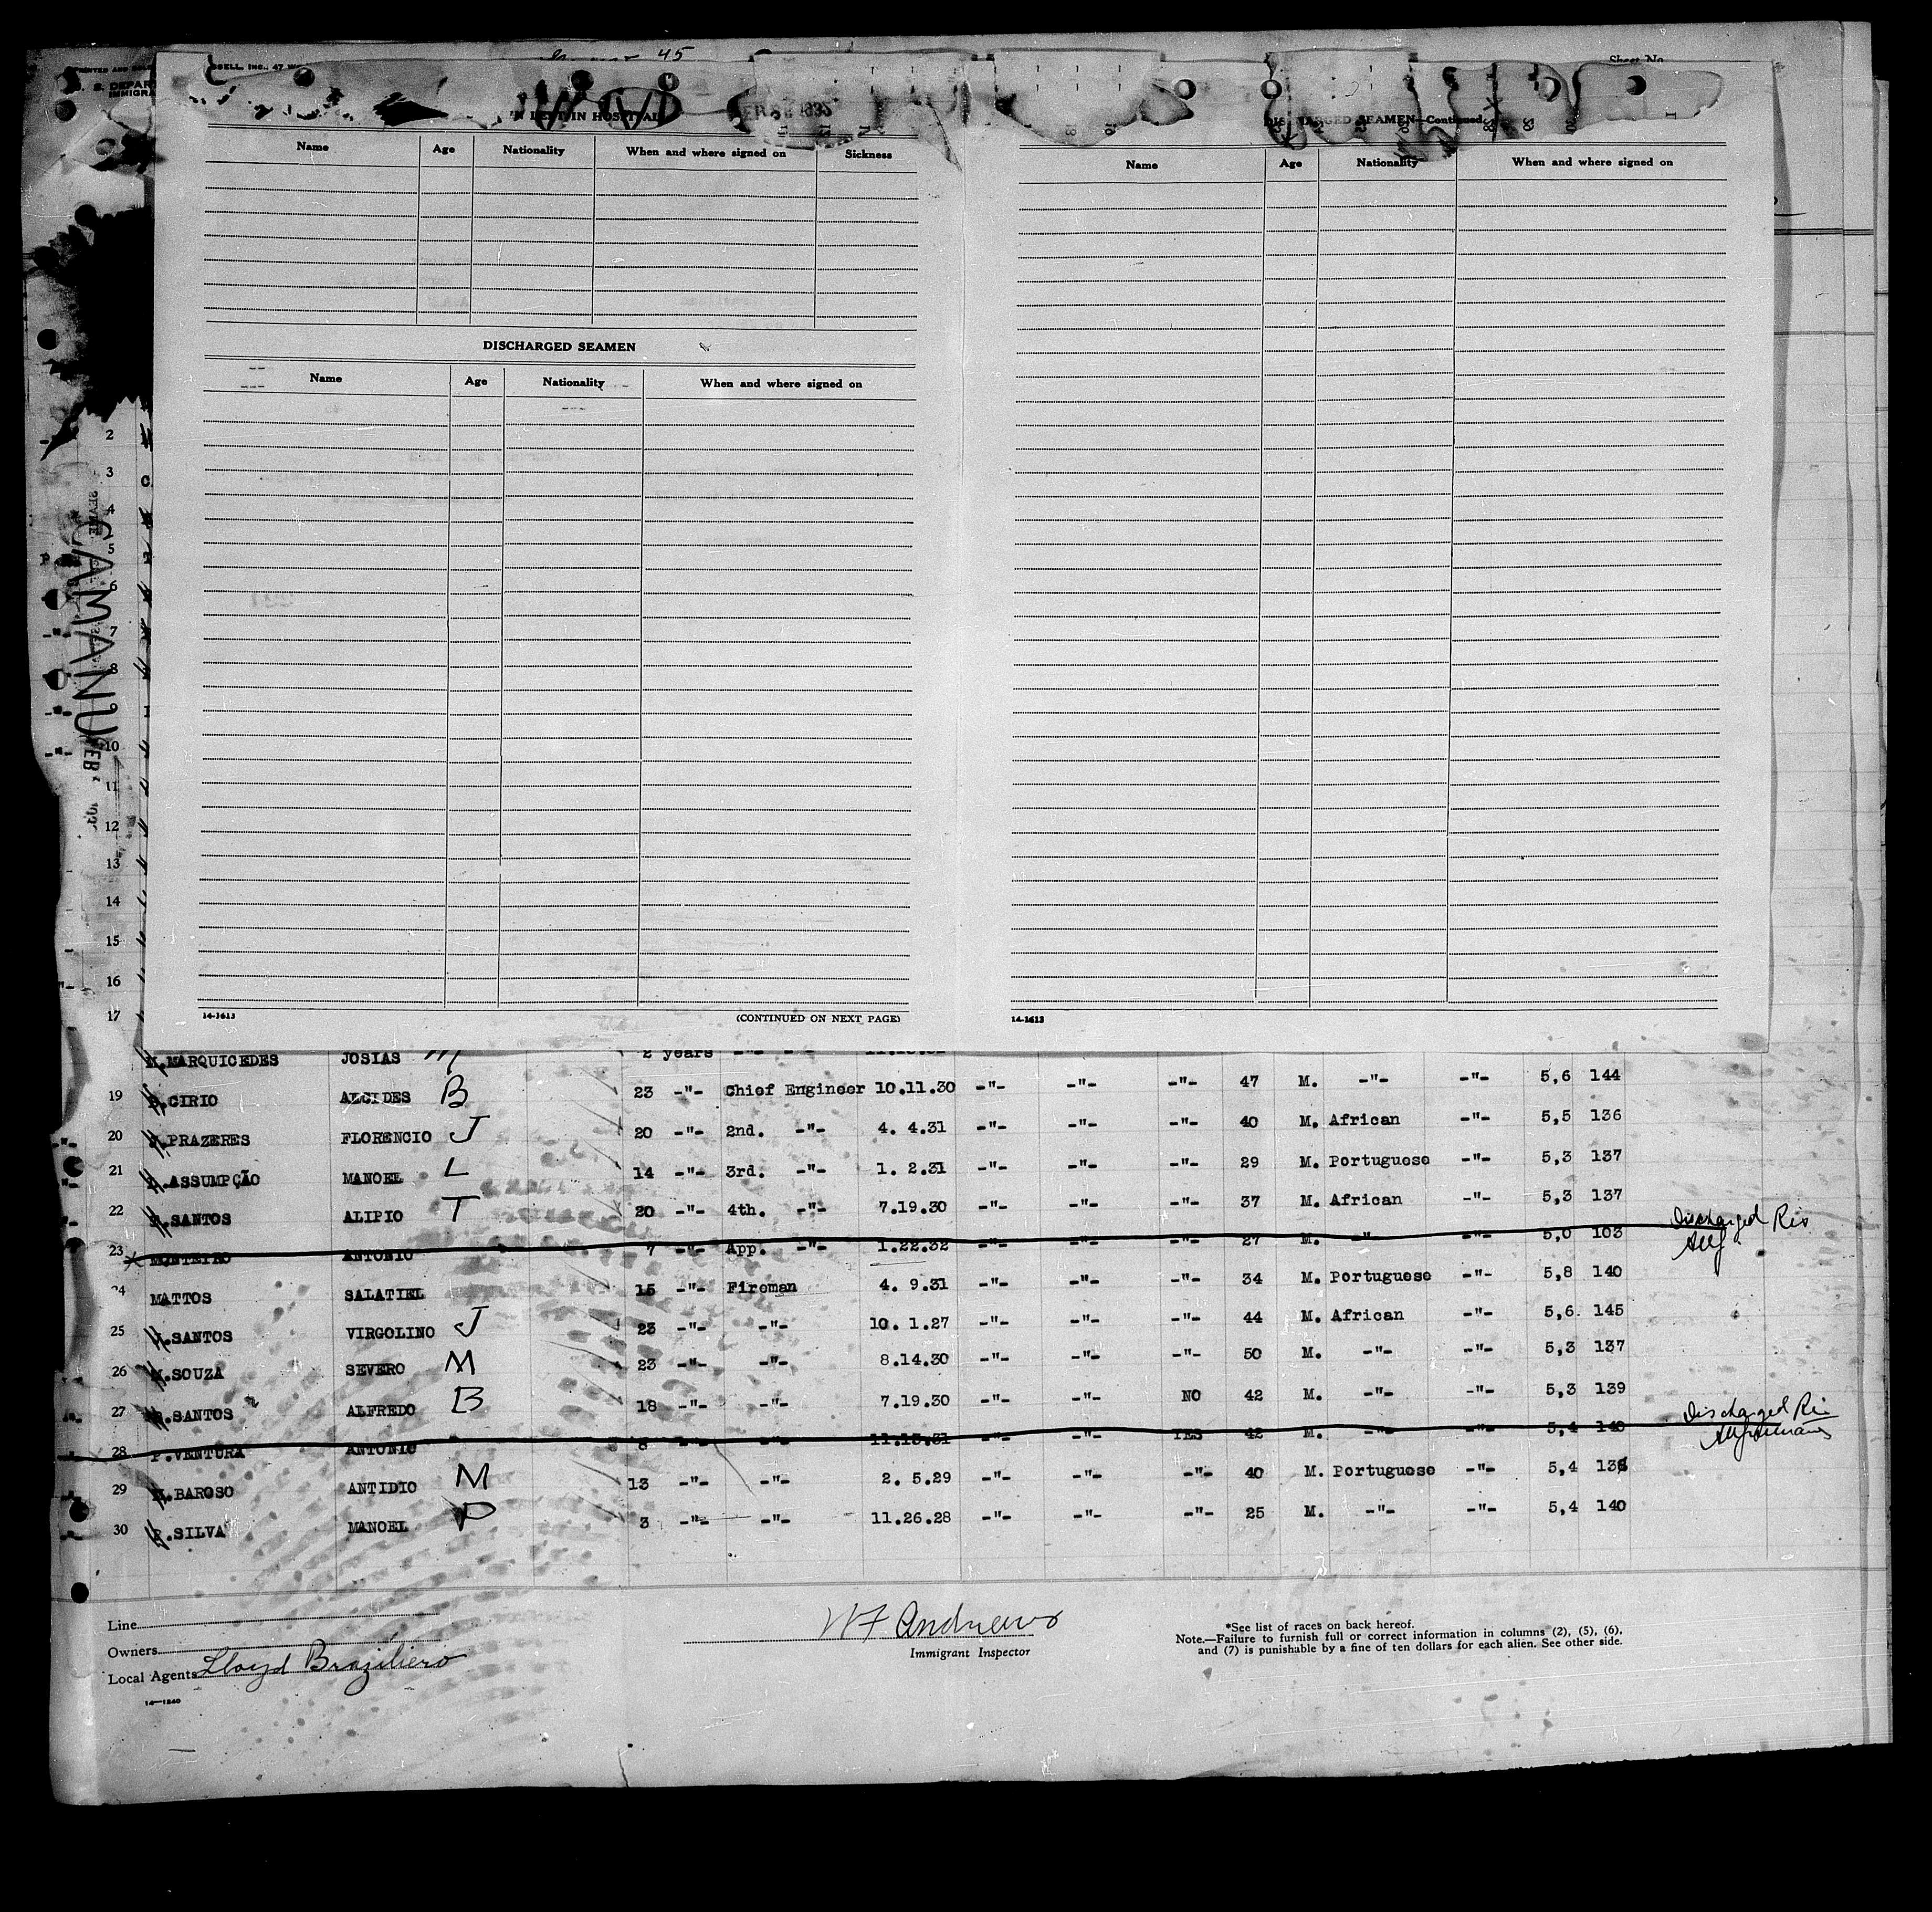 45
Sheet No.
LEFT IN HOSPITAL
Name Age Nationality When and where signed on Sickness
DISCHARGED SEAMEN
Name Age Nationality When and where signed on
(CONTINUED ON NEXT PAGE)
14-1613
DISCHARGED SEAMEN—Continued
Name Age Nationality When and where signed on
14-1613
CAMAMU
FEB
2
3
4
5
6
7
8
9
10
11
12
13
14
15
16
17
M.MARQUICEDES JOSIAS M 2 years -"- -"-
19 B.CIRIO ALCIDES B 23 -"- Chief Engineer 10.11.30 -"- -"- -"- 47 M. -"- -"- 5,6 144
20 J.PRAZERES FLORENCIO J 20 -"- 2nd. -"- 4. 4.31 -"- -"- -"- 40 M. African -"- 5,5 136
21 L.ASSUMPÇÃO MANOEL L 14 -"- 3rd. -"- 1. 2.31 -"- -"- -"- 29 M. Portuguese -"- 5,3 137
22 T.SANTOS ALIPIO T 20 -"- 4th. -"- 7.19.30 -"- -"- -"- 37 M. African -"- 5,3 137
23 MONTEIRO ANTONIO 7 -"- App. -"- 1.22.32 -"- -"- -"- 27 M. -"- -"- 5,0 103 Discharged Rio
24 MATTOS SALATIEL 15 -"- Fireman 4. 9.31 -"- -"- -"- 34 M. Portuguese -"- 5,8 140
25 J.SANTOS VIRGOLINO J 23 -"- -"- 10. 1.27 -"- -"- -"- 44 M. African -"- 5,6 145
26 M.SOUZA SEVERO M 23 -"- -"- 8.14.30 -"- -"- -"- 50 M. -"- -"- 5,3 137
27 B.SANTOS ALFREDO B 18 -"- -"- 7.19.30 -"- -"- NO 42 M. -"- -"- 5,3 139
28 P.VENTURA ANTONIO 8 -"- -"- 11.15.31 -"- -"- YES 42 M. -"- -"- 5,4 140 Discharged Rio
29 M.BAROSO ANTIDIO M 13 -"- -"- 2. 5.29 -"- -"- -"- 40 M. Portuguese -"- 5,4
30 P.SILVA MANOEL P 3 -"- -"- 11.26.28 -"- -"- -"- 25 M. -"- -"- 5,4 140
Line
Owners
Local Agents Lloyd Braziliero
14—1240
W F Andrews
Immigrant Inspector
*See list of races on back hereof.
Note.—Failure to furnish full or correct information in columns (2), (5), (6),
and (7) is punishable by a fine of ten dollars for each alien. See other side.